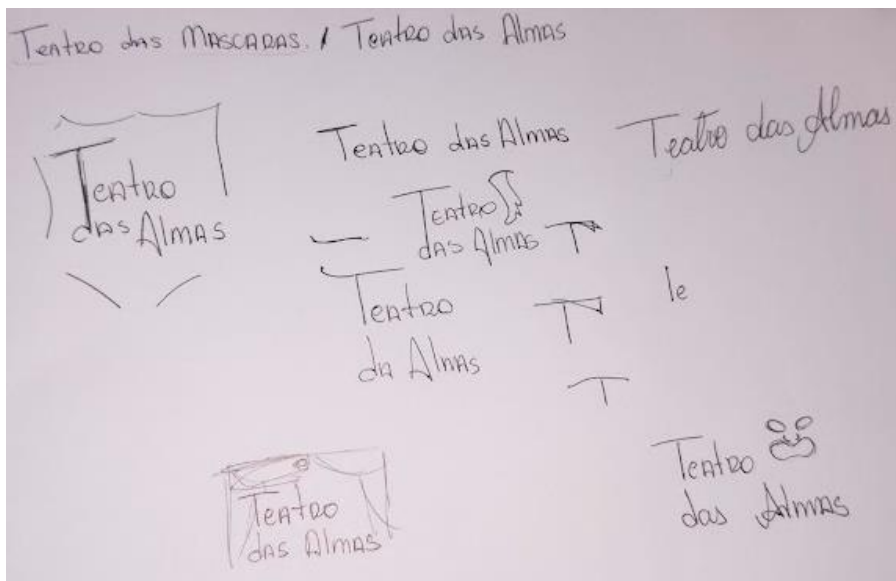 Teatro das Mascaras / Teatro das Almas
Teatro
das Almas
Teatro das Almas
Teatro das Almas
Teatro
das Almas
T
Teatro
da Almas
T
le
T
Teatro
das Almas
Teatro
das Almas